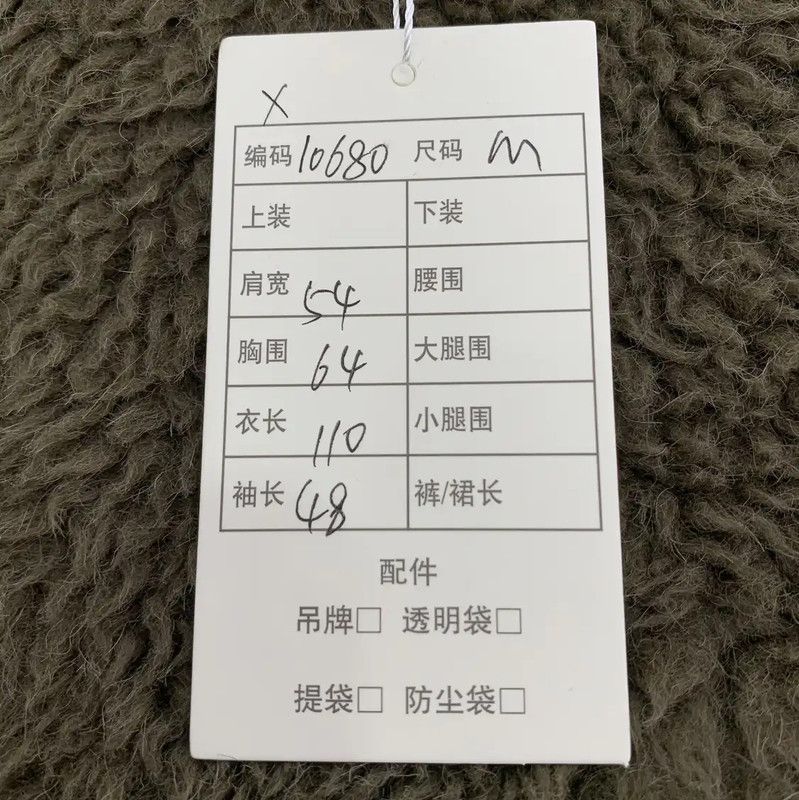 X
编码 10680 尺码 M
上装 下装
肩宽 54 腰围
胸围 64 大腿围
衣长 110 小腿围
袖长 48 裤/裙长
配件
吊牌□ 透明袋□
提袋□ 防尘袋□